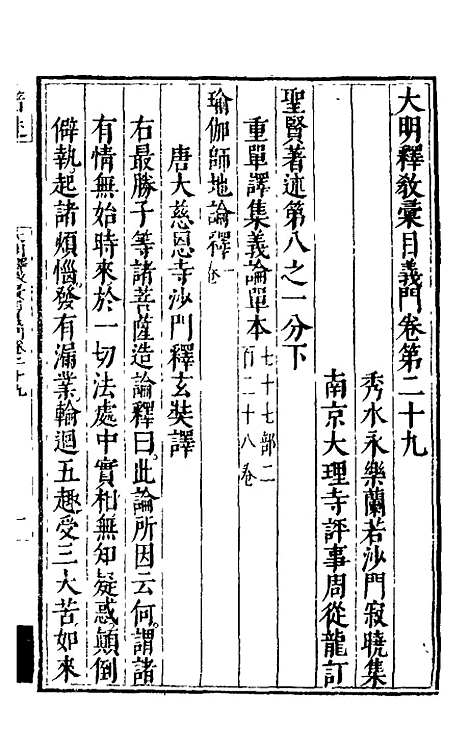 大明釋教彙目義門卷第二十九
秀水永樂蘭若沙門寂曉集
南京大理寺評事周從龍訂
聖賢著述第八之一分下
重單譯集義論單本七十七部二百二十八卷
瑜伽師地論釋一卷
唐大慈恩寺沙門釋玄奘譯
右最勝子等諸菩薩造論釋曰此論所因云何謂諸
有情無始時來於一切法處中實相無知疑惑顛倒
僻執起諸煩惱發有漏業輪迴五趣受三大苦如來